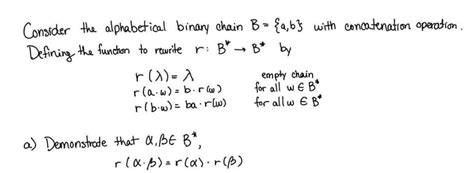 Consider the alphabetical binary chain B = {a,b} with concatenation operation.
Defining the function to rewrite r: B* → B* by
r(λ) = λ empty chain
r(a·w) = b·r(w) for all w ∈ B*
r(b·w) = ba·r(w) for all w ∈ B*
a) Demonstrate that α,β ∈ B*,
r(α·β) = r(α)·r(β)